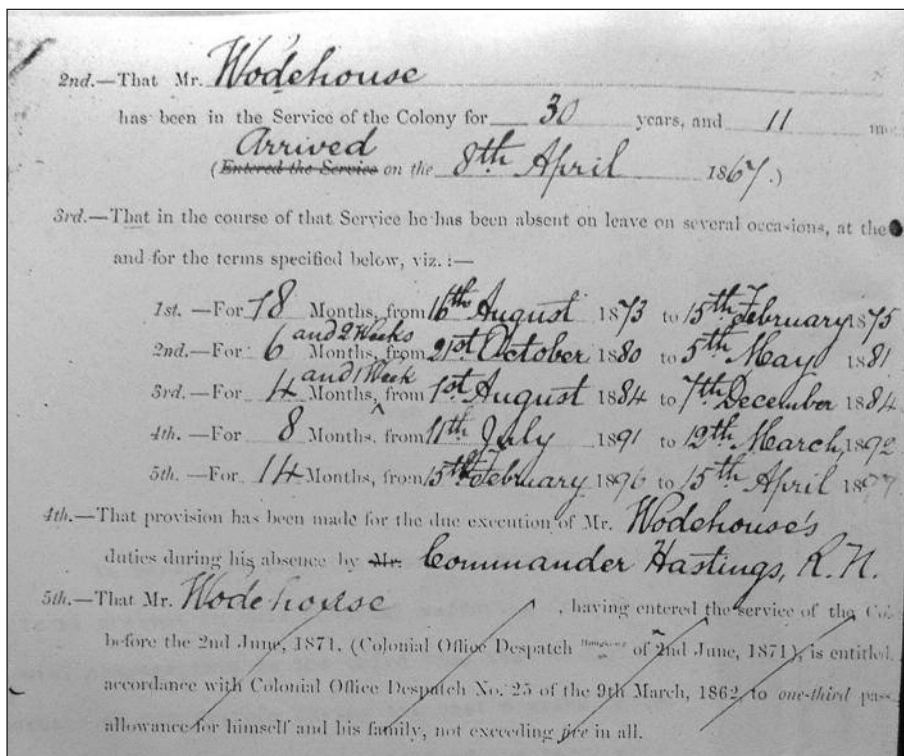 2nd.—That Mr. Wodehouse
has been in the Service of the Colony for 30 years, and 11
Arrived
(Entered the Service on the 8th April 1867.)
3rd.—That in the course of that Service he has been absent on leave on several occasions, at the
and for the terms specified below, viz.:—
1st. —For 18 Months, from 16th August 1873 to 15th February 1875
and 2 Weeks
2nd.—For 6 Months, from 21st October 1880 to 5th May 1881
and 1 Week
3rd.—For 4 Months, from 1st August 1884 to 7th December 1884
4th. —For 8 Months, from 11th July 1891 to 12th March, 1892
5th. —For 14 Months, from 15th February 1896 to 15th April 1897
4th.—That provision has been made for the due execution of Mr. Wodehouse's
duties during his absence by Mr. Commander Hastings, R.N.
5th.—That Mr. Wodehouse , having entered the service of the
before the 2nd June, 1871, (Colonial Office Despatch of 2nd June, 1871), is entitled,
accordance with Colonial Office Despatch No. 25 of the 9th March, 1862, to one-third
allowance for himself and his family, not exceeding five in all.